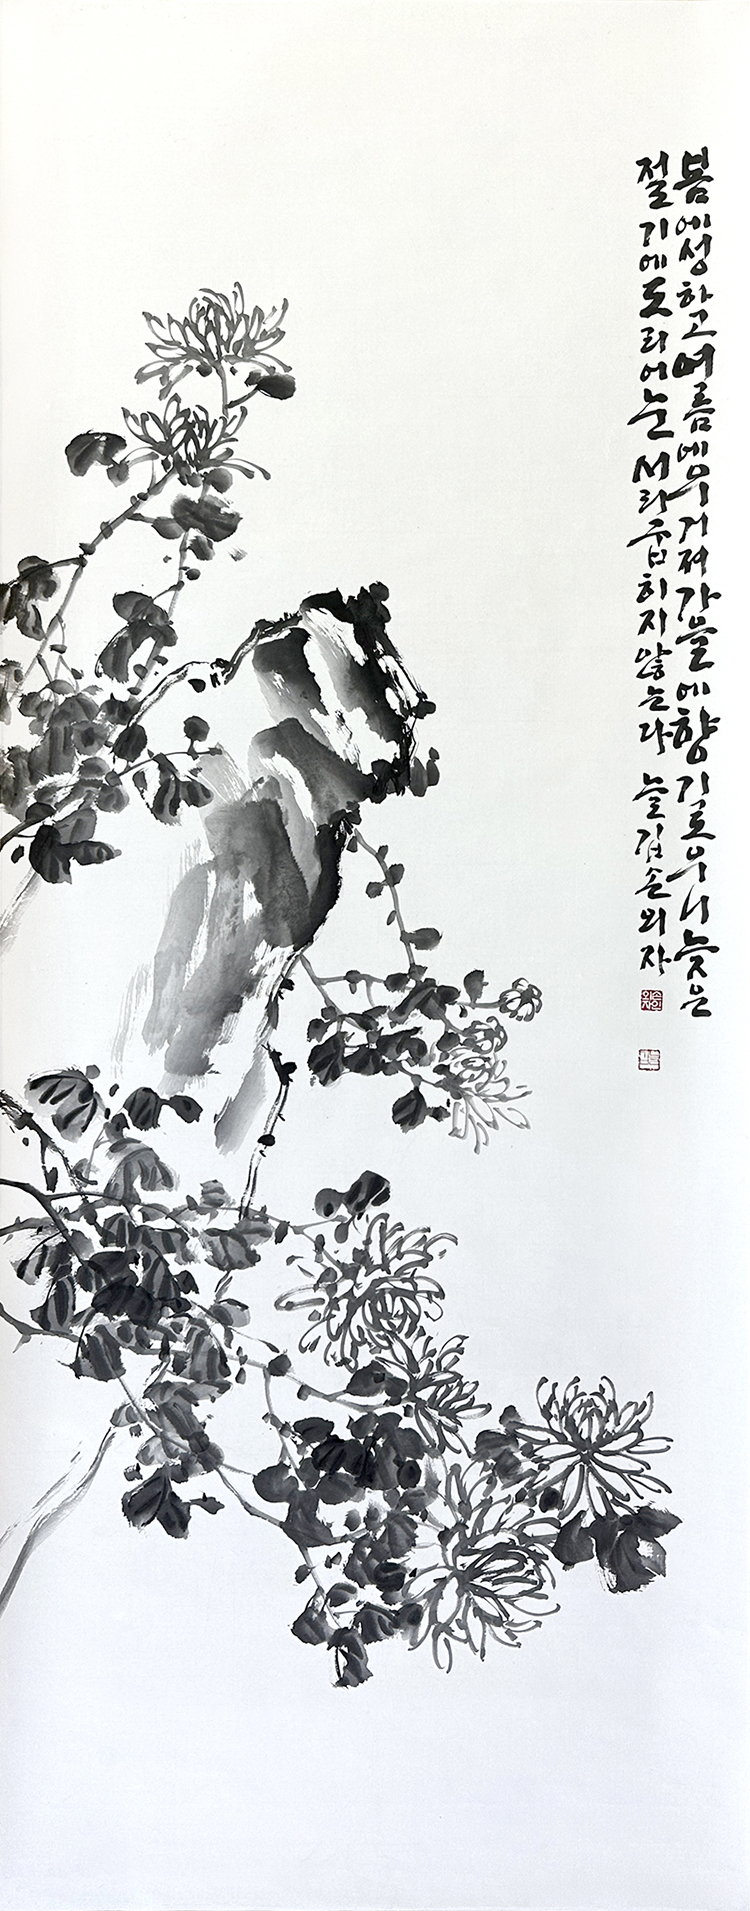 봄에성하고여름에우거져가을에향기로우니늦은
절기에도리어눈서리굽히지않는다 늘김손외자